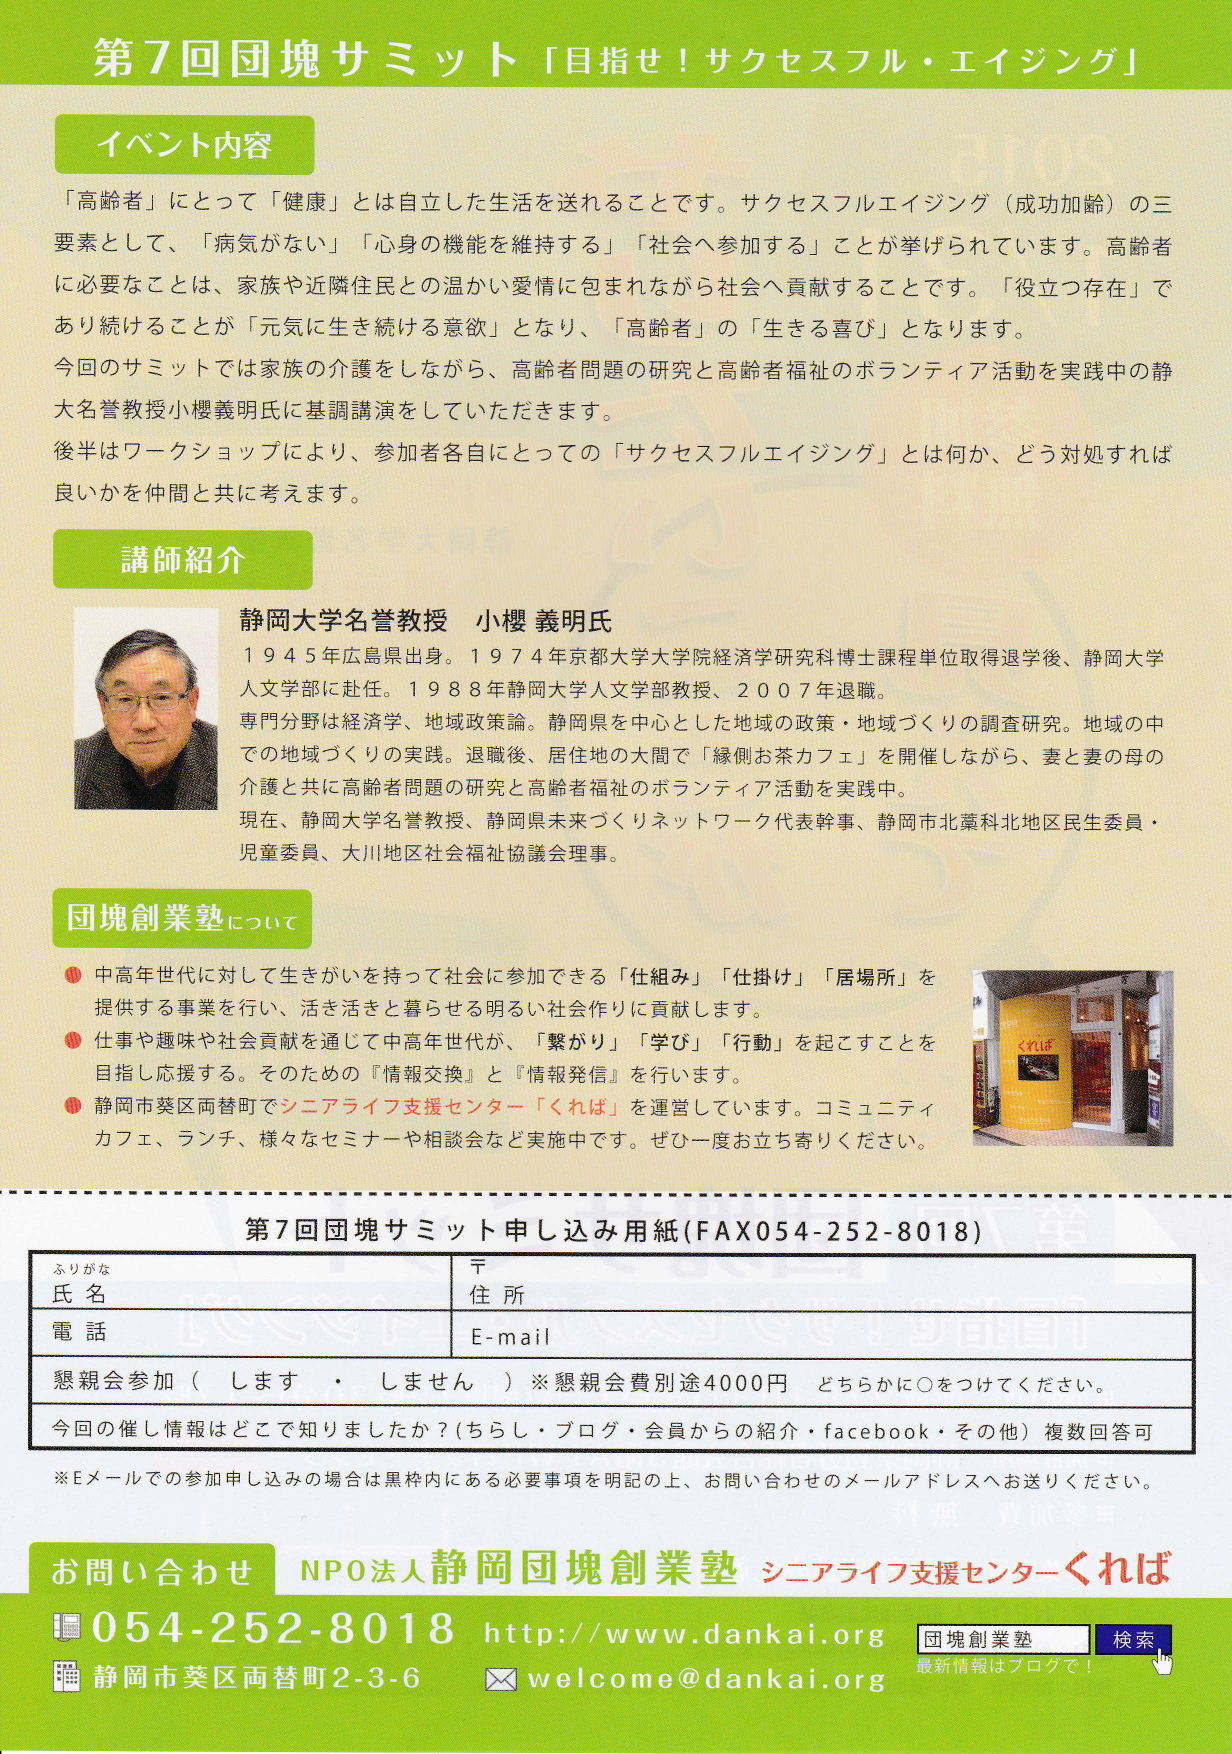 第7回団塊サミット「目指せ！サクセスフル・エイジング」
イベント内容
「高齢者」にとって「健康」とは自立した生活を送れることです。サクセスフルエイジング（成功加齢）の三
要素として、「病気がない」「心身の機能を維持する」「社会へ参加する」ことが挙げられています。高齢者
に必要なことは、家族や近隣住民との温かい愛情に包まれながら社会へ貢献することです。「役立つ存在」で
あり続けることが「元気に生き続ける意欲」となり、「高齢者」の「生きる喜び」となります。
今回のサミットでは家族の介護をしながら、高齢者問題の研究と高齢者福祉のボランティア活動を実践中の静
大名誉教授小櫻義明氏に基調講演をしていただきます。
後半はワークショップにより、参加者各自にとっての「サクセスフルエイジング」とは何か、どう対処すれば
良いかを仲間と共に考えます。
講師紹介
静岡大学名誉教授　小櫻 義明氏
１９４５年広島県出身。１９７４年京都大学大学院経済学研究科博士課程単位取得退学後、静岡大学
人文学部に赴任。１９８８年静岡大学人文学部教授、２００７年退職。
専門分野は経済学、地域政策論。静岡県を中心とした地域の政策・地域づくりの調査研究。地域の中
での地域づくりの実践。退職後、居住地の大間で「縁側お茶カフェ」を開催しながら、妻と妻の母の
介護と共に高齢者問題の研究と高齢者福祉のボランティア活動を実践中。
現在、静岡大学名誉教授、静岡県未来づくりネットワーク代表幹事、静岡市北藁科北地区民生委員・
児童委員、大川地区社会福祉協議会理事。
団塊創業塾について
● 中高年世代に対して生きがいを持って社会に参加できる「仕組み」「仕掛け」「居場所」を
提供する事業を行い、活き活きと暮らせる明るい社会作りに貢献します。
● 仕事や趣味や社会貢献を通じて中高年世代が、「繋がり」「学び」「行動」を起こすことを
目指し応援する。そのための『情報交換』と『情報発信』を行います。
● 静岡市葵区両替町でシニアライフ支援センター「くれば」を運営しています。コミュニティ
カフェ、ランチ、様々なセミナーや相談会など実施中です。ぜひ一度お立ち寄りください。
くれば
第7回団塊サミット申し込み用紙(FAX054-252-8018)
ふりがな
氏 名
〒
住 所
電 話
E-mail
懇親会参加（　します　・　しません　）※懇親会費別途4000円　どちらかに○をつけてください。
今回の催し情報はどこで知りましたか？(ちらし・ブログ・会員からの紹介・facebook・その他）複数回答可
※Eメールでの参加申し込みの場合は黒枠内にある必要事項を明記の上、お問い合わせのメールアドレスへお送りください。
お問い合わせ
NPO法人静岡団塊創業塾 シニアライフ支援センターくれば
054-252-8018
http://www.dankai.org
団塊創業塾 検索
最新情報はブログで！
静岡市葵区両替町2-3-6
welcome@dankai.org